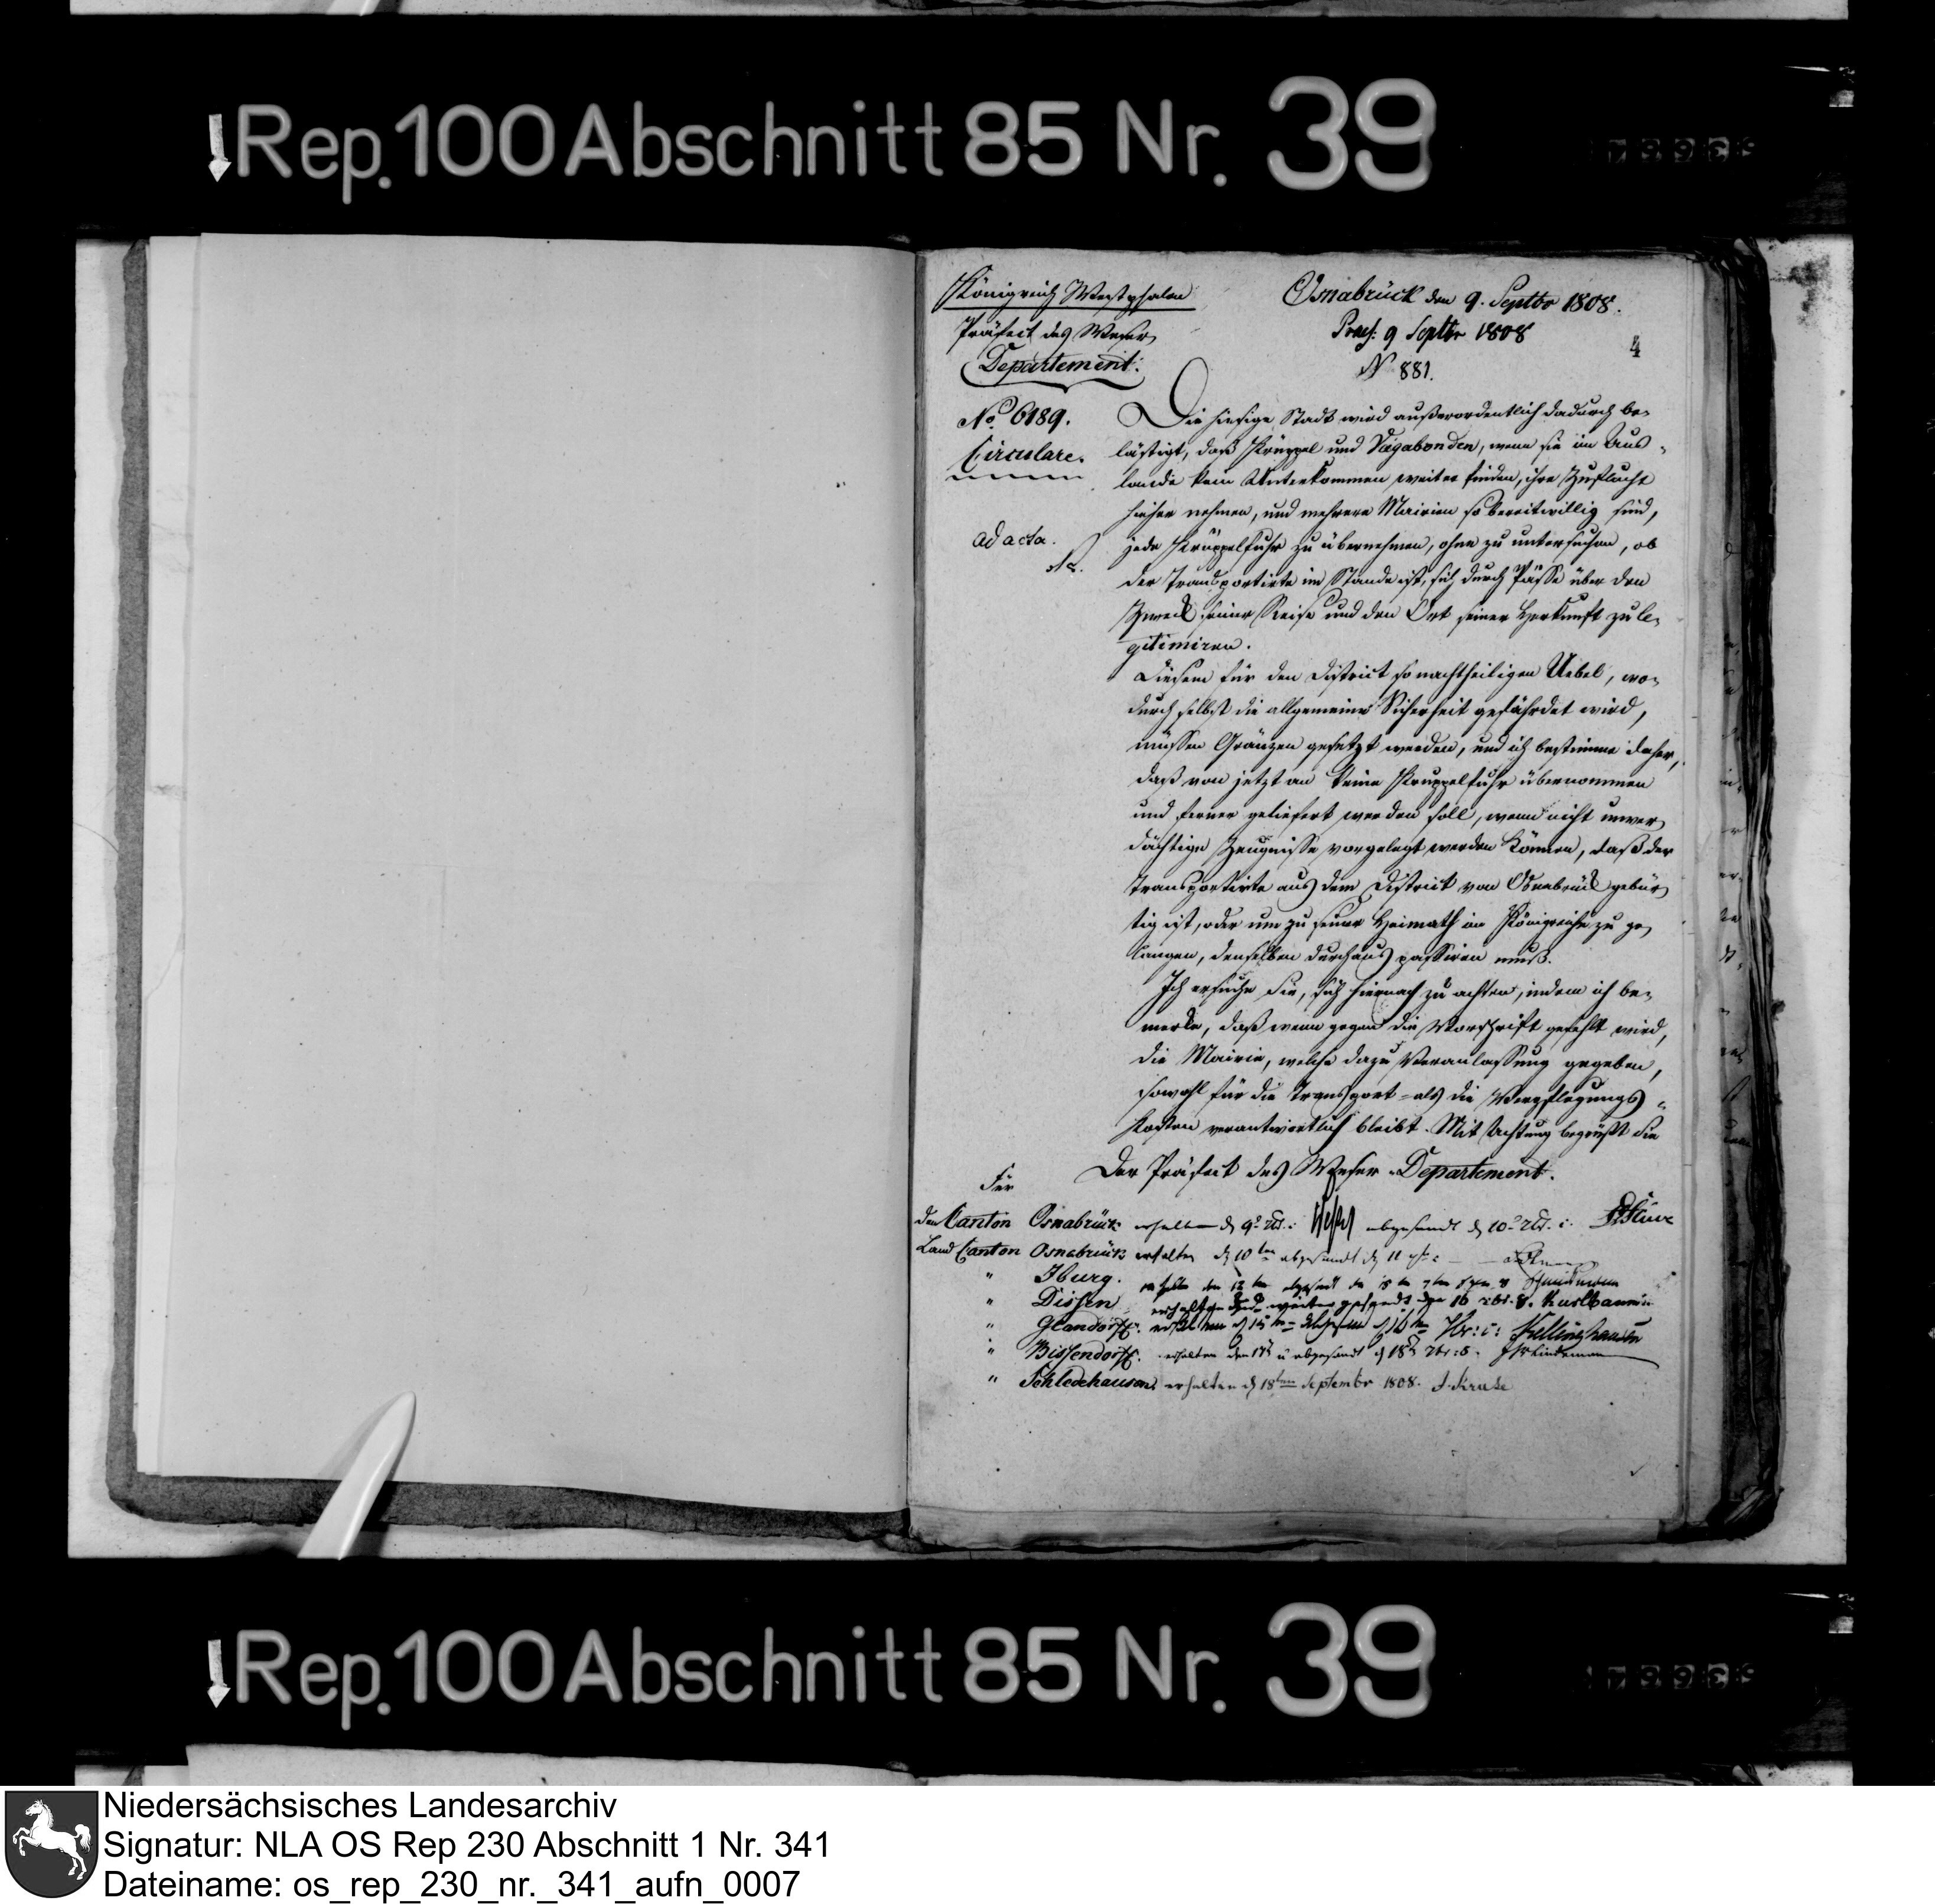 Rep. 100 Abschnitt 85 Nr. 39
Königreich Westphalen
Präfect des Weser
Departement.
No. 6189.
Circulare.
ad acta.
Osnabrück den 9. Septbr 1808.
Praes: 9 Septbr 1808
N 881.
4
Die hiesige Stadt wird außerordentlich dadurch be-
lästigt, daß Krüppel und Vagabonden, wenn sie im Aus-
lande kein Unterkommen weiter finden, ihre Zuflucht
hieher nehmen, und mehrere Mairien so bereitwillig sind,
jede Krüppelfuhr zu übernehmen, ohne zu untersuchen, ob
der Transportirte im Stande ist, sich durch Pässe über den
Zweck seiner Reise und den Ort seiner Herkunft zu le-
gitimiren.
Diesem für den District so nachtheiligen Uebel, wo-
durch selbst die allgemeine Sicherheit gefährdet wird,
müssen Gränzen gesetzt werden, und ich bestimme daher,
daß von jetzt an keine Kruppelfuhr übernommen
und ferner geliefert werden soll, wenn nicht unver
dächtige Zeugnisse vorgelegt werden können, daß der
Transportirte aus dem District von Osnabrück gebür
tig ist, oder um zu seiner Heimath im Königreiche zu ge
langen, denselben durchaus passiren muß.
Ich ersuche Sie, sich hiernach zu achten, indem ich be-
merke, daß wenn gegen die Vorschrift gefehlt wird,
die Mairie, welche dazu Veranlassung gegeben,
sowohl für die Transport- als die Verpflegungs-
kosten verantwortlich bleibt. Mit Achtung begrüßt Sie
Der Präfect des Weser-Departement.
Für
den Canton Osnabrück erhalten d 9t abgesandt d 10t Stüve
Land Canton Osnabrück erhalten d 10ten abgesandt d 11
" Iburg. erhalten den 12ten abgesandt
" Dissen erhalten und weiter gesandt den 16
" Glandorff. erhalten d 15ten d 16ten
" Bissendorff. erhalten den 17t u abgesandt d 18t 7br Lindemann
" Schledehausen erhalten d 18ten September 1808. Kruse
Rep. 100 Abschnitt 85 Nr. 39
Niedersächsisches Landesarchiv
Signatur: NLA OS Rep 230 Abschnitt 1 Nr. 341
Dateiname: os_rep_230_nr._341_aufn_0007